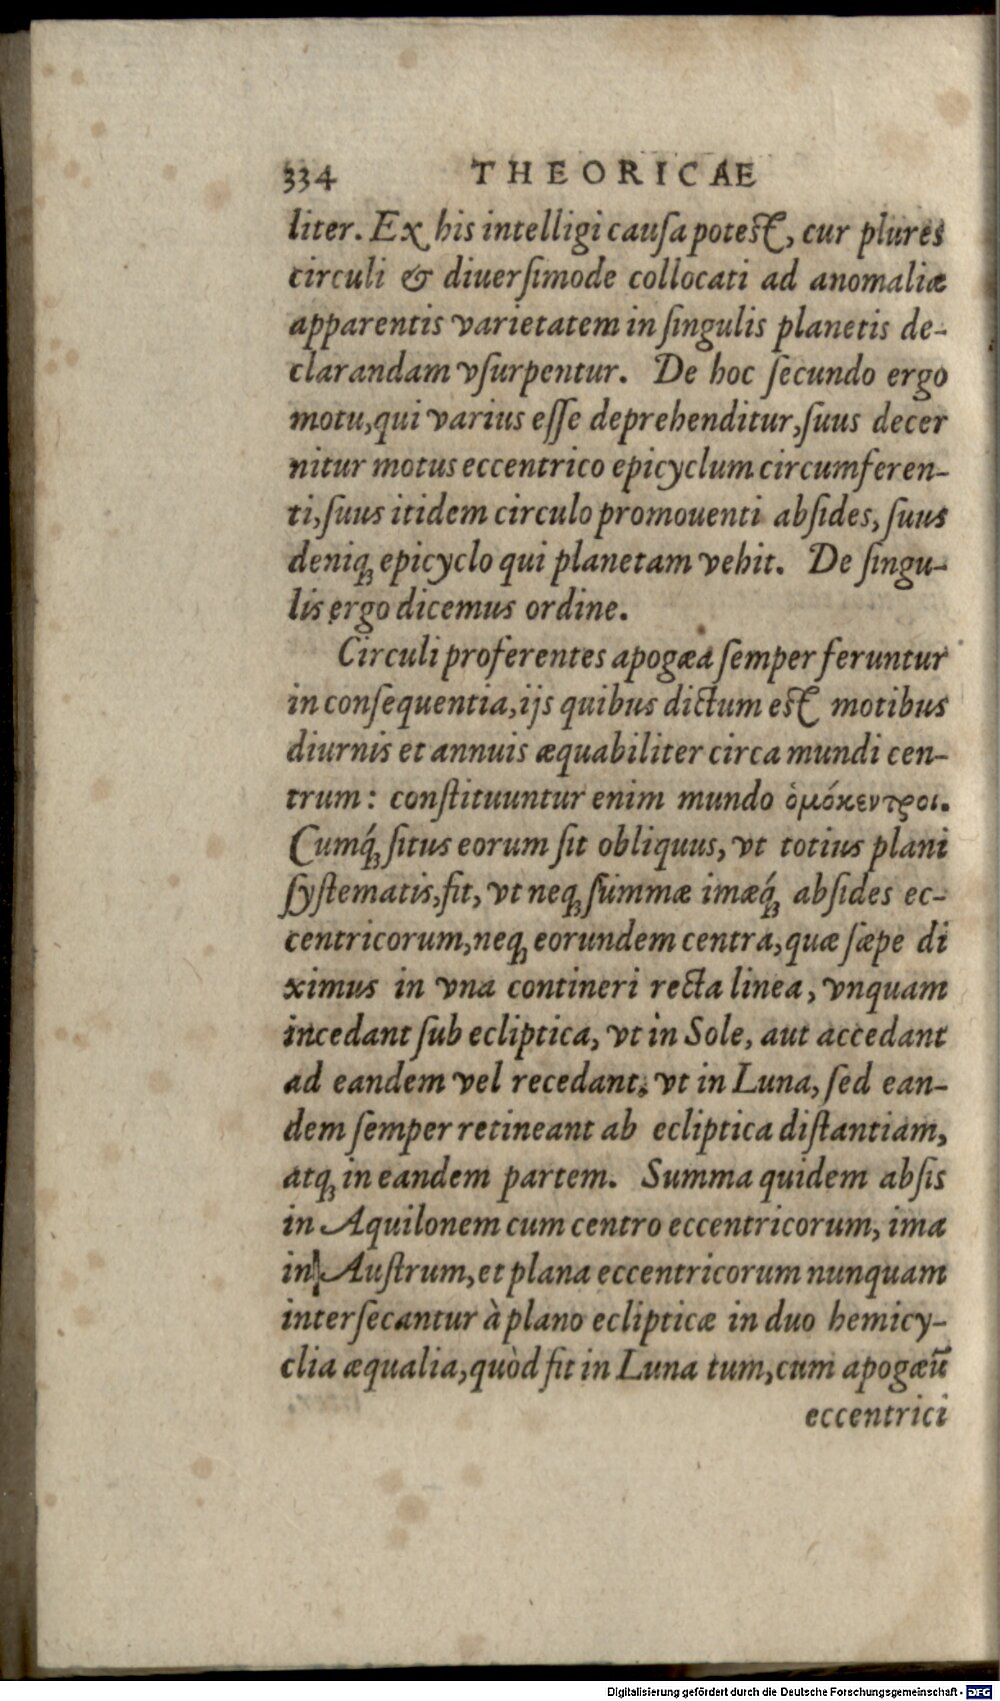 334 THEORICAE
liter. Ex his intelligi cauſa poteſt, cur plures
circuli & diuerſimode collocati ad anomaliæ
apparentis varietatem in ſingulis planetis de-
clarandam vſurpentur. De hoc ſecundo ergo
motu, qui varius eſſe deprehenditur, ſuus decer
nitur motus eccentrico epicyclum circumferen-
ti, ſuus itidem circulo promouenti abſides, ſuus
deniq; epicyclo qui planetam vehit. De ſingu-
lis ergo dicemus ordine.
Circuli proferentes apogæa ſemper feruntur
in conſequentia, ijs quibus dictum eſt motibus
diurnis et annuis æquabiliter circa mundi cen-
trum: conſtituuntur enim mundo ὁμόκεντροι.
Cumq́; ſitus eorum ſit obliquus, vt totius plani
ſyſtematis, fit, vt neq; ſummæ imæq́; abſides ec-
centricorum, neq; eorundem centra, quæ ſæpe di
ximus in vna contineri recta linea, vnquam
incedant ſub ecliptica, vt in Sole, aut accedant
ad eandem vel recedant, vt in Luna, ſed ean-
dem ſemper retineant ab ecliptica diſtantiam,
atq; in eandem partem. Summa quidem abſis
in Aquilonem cum centro eccentricorum, ima
in Auſtrum, et plana eccentricorum nunquam
interſecantur à plano eclipticæ in duo hemicy-
clia æqualia, quòd fit in Luna tum, cum apogæū
eccentrici
Digitalisierung gefördert durch die Deutsche Forschungsgemeinschaft - DFG